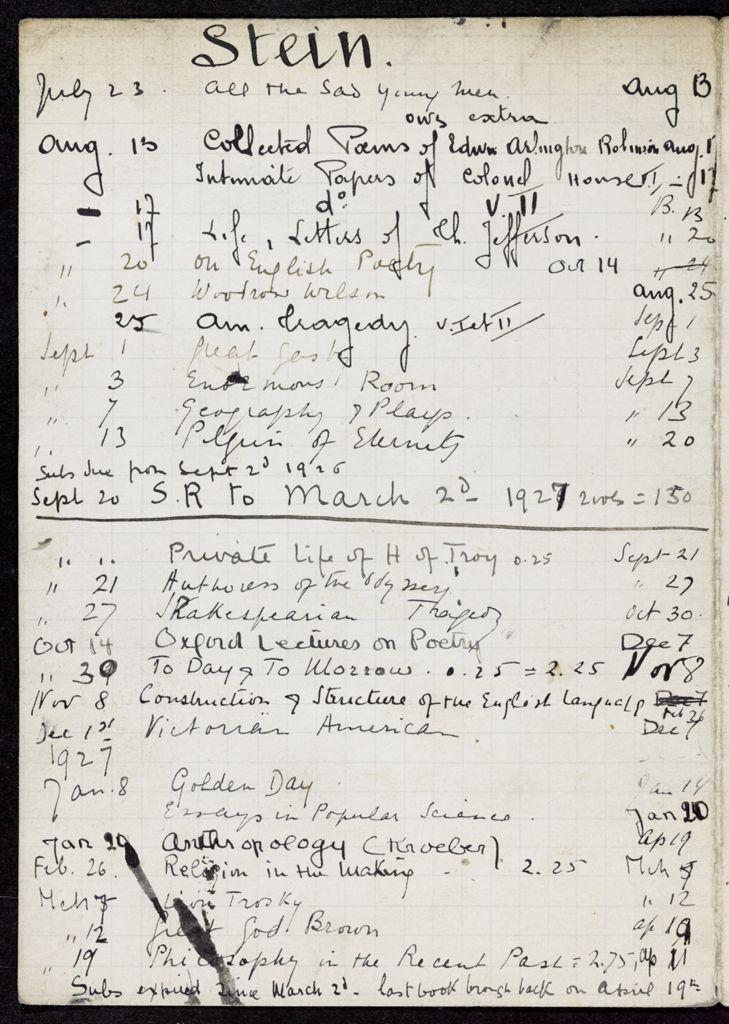 Stein.
July 23. All the Sad Young Men. Aug 13
owes extra
Aug. 13 Collected Poems of Edwin Arlington Robinson Aug. 17
Intimate Papers of Colonel House V I - 17
- 17 do V. II B. B
- 17 Life, Letters of Th. Jefferson. " 20
" 20 On English Poetry Oct 14 " 24
" 24 Woodrow Wilson Aug. 25
25 Am. Tragedy V. I et II Sept 1
Sept 1 Great Gatsby Sept 3
" 3 Enormous Room Sept 7
" 7 Geography & Plays. " 13
" 13 Pilgrim of Eternity " 20
Subs due from Sept 2d 1926
Sept 20 S.R to March 2d 1927 2 vols = 150
" " Private Life of H of Troy 0.25 Sept 21
" 21 Authoress of the Odyssey " 27
" 27 Shakespearian Tragedy Oct 30.
Oct 14 Oxford Lectures on Poetry Dec 7
" 30 To Day & To Morrow. 0.25 = 2.25 Nov 8
Nov 8 Construction & Structure of the English Language Dec 7
Feb 26
Dec 1st Victorian American Dec 7
1927
Jan. 8 Golden Day Jan 14
Essays in Popular Science. Jan 20
Jan 20 Anthropology (Kroeber) Ap 19
Feb. 26. Religion in the Making - 2.25 Mch 5
Mch 5 Trosky " 12
" 12 Great God Brown Ap 19
" 19 Philosophy in the Recent Past = 2.75, Ap 11
Subs expired since March 2d. last book brough back on April 19th